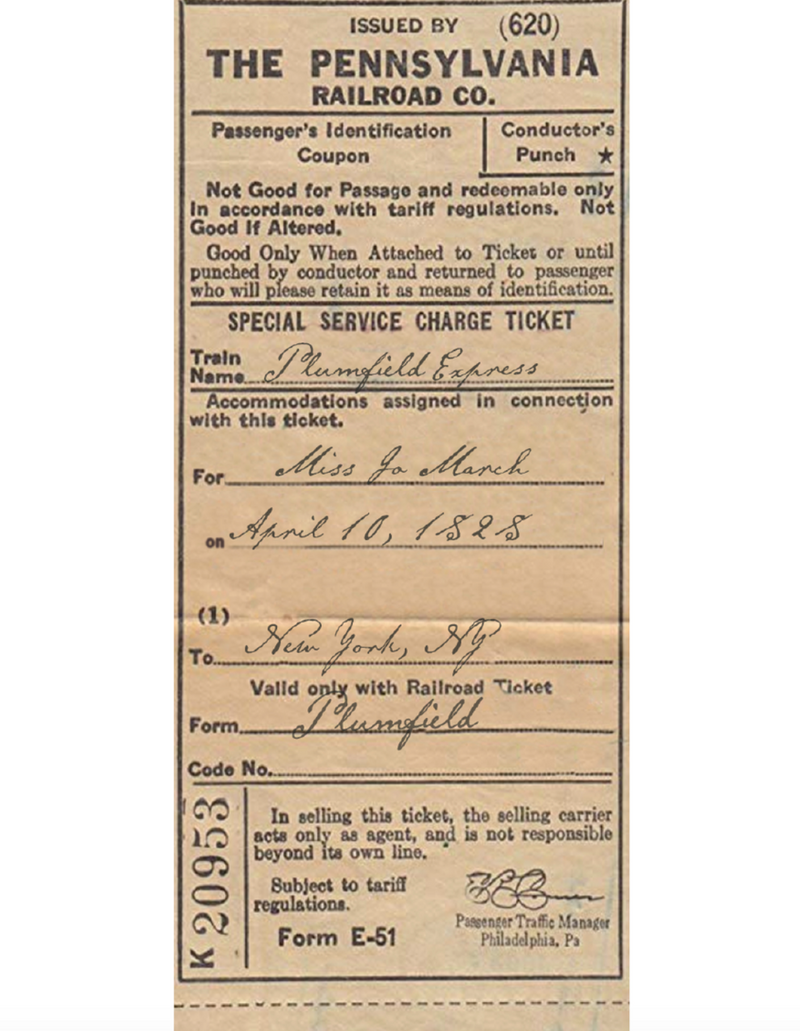 ISSUED BY (620)
THE PENNSYLVANIA
RAILROAD CO.
Passenger's Identification
Coupon
Conductor's
Punch ★
Not Good for Passage and redeemable only
in accordance with tariff regulations. Not
Good If Altered.
Good Only When Attached to Ticket or until
punched by conductor and returned to passenger
who will please retain it as means of identification.
SPECIAL SERVICE CHARGE TICKET
Train
Name Plumfield Express
Accommodations assigned in connection
with this ticket.
For Miss Jo March
on April 10, 1828
(1)
To New York, NY
Valid only with Railroad Ticket
Form Plumfield
Code No.
K 20953
In selling this ticket, the selling carrier
acts only as agent, and is not responsible
beyond its own line.
Subject to tariff
regulations.
Form E-51
Passenger Traffic Manager
Philadelphia, Pa